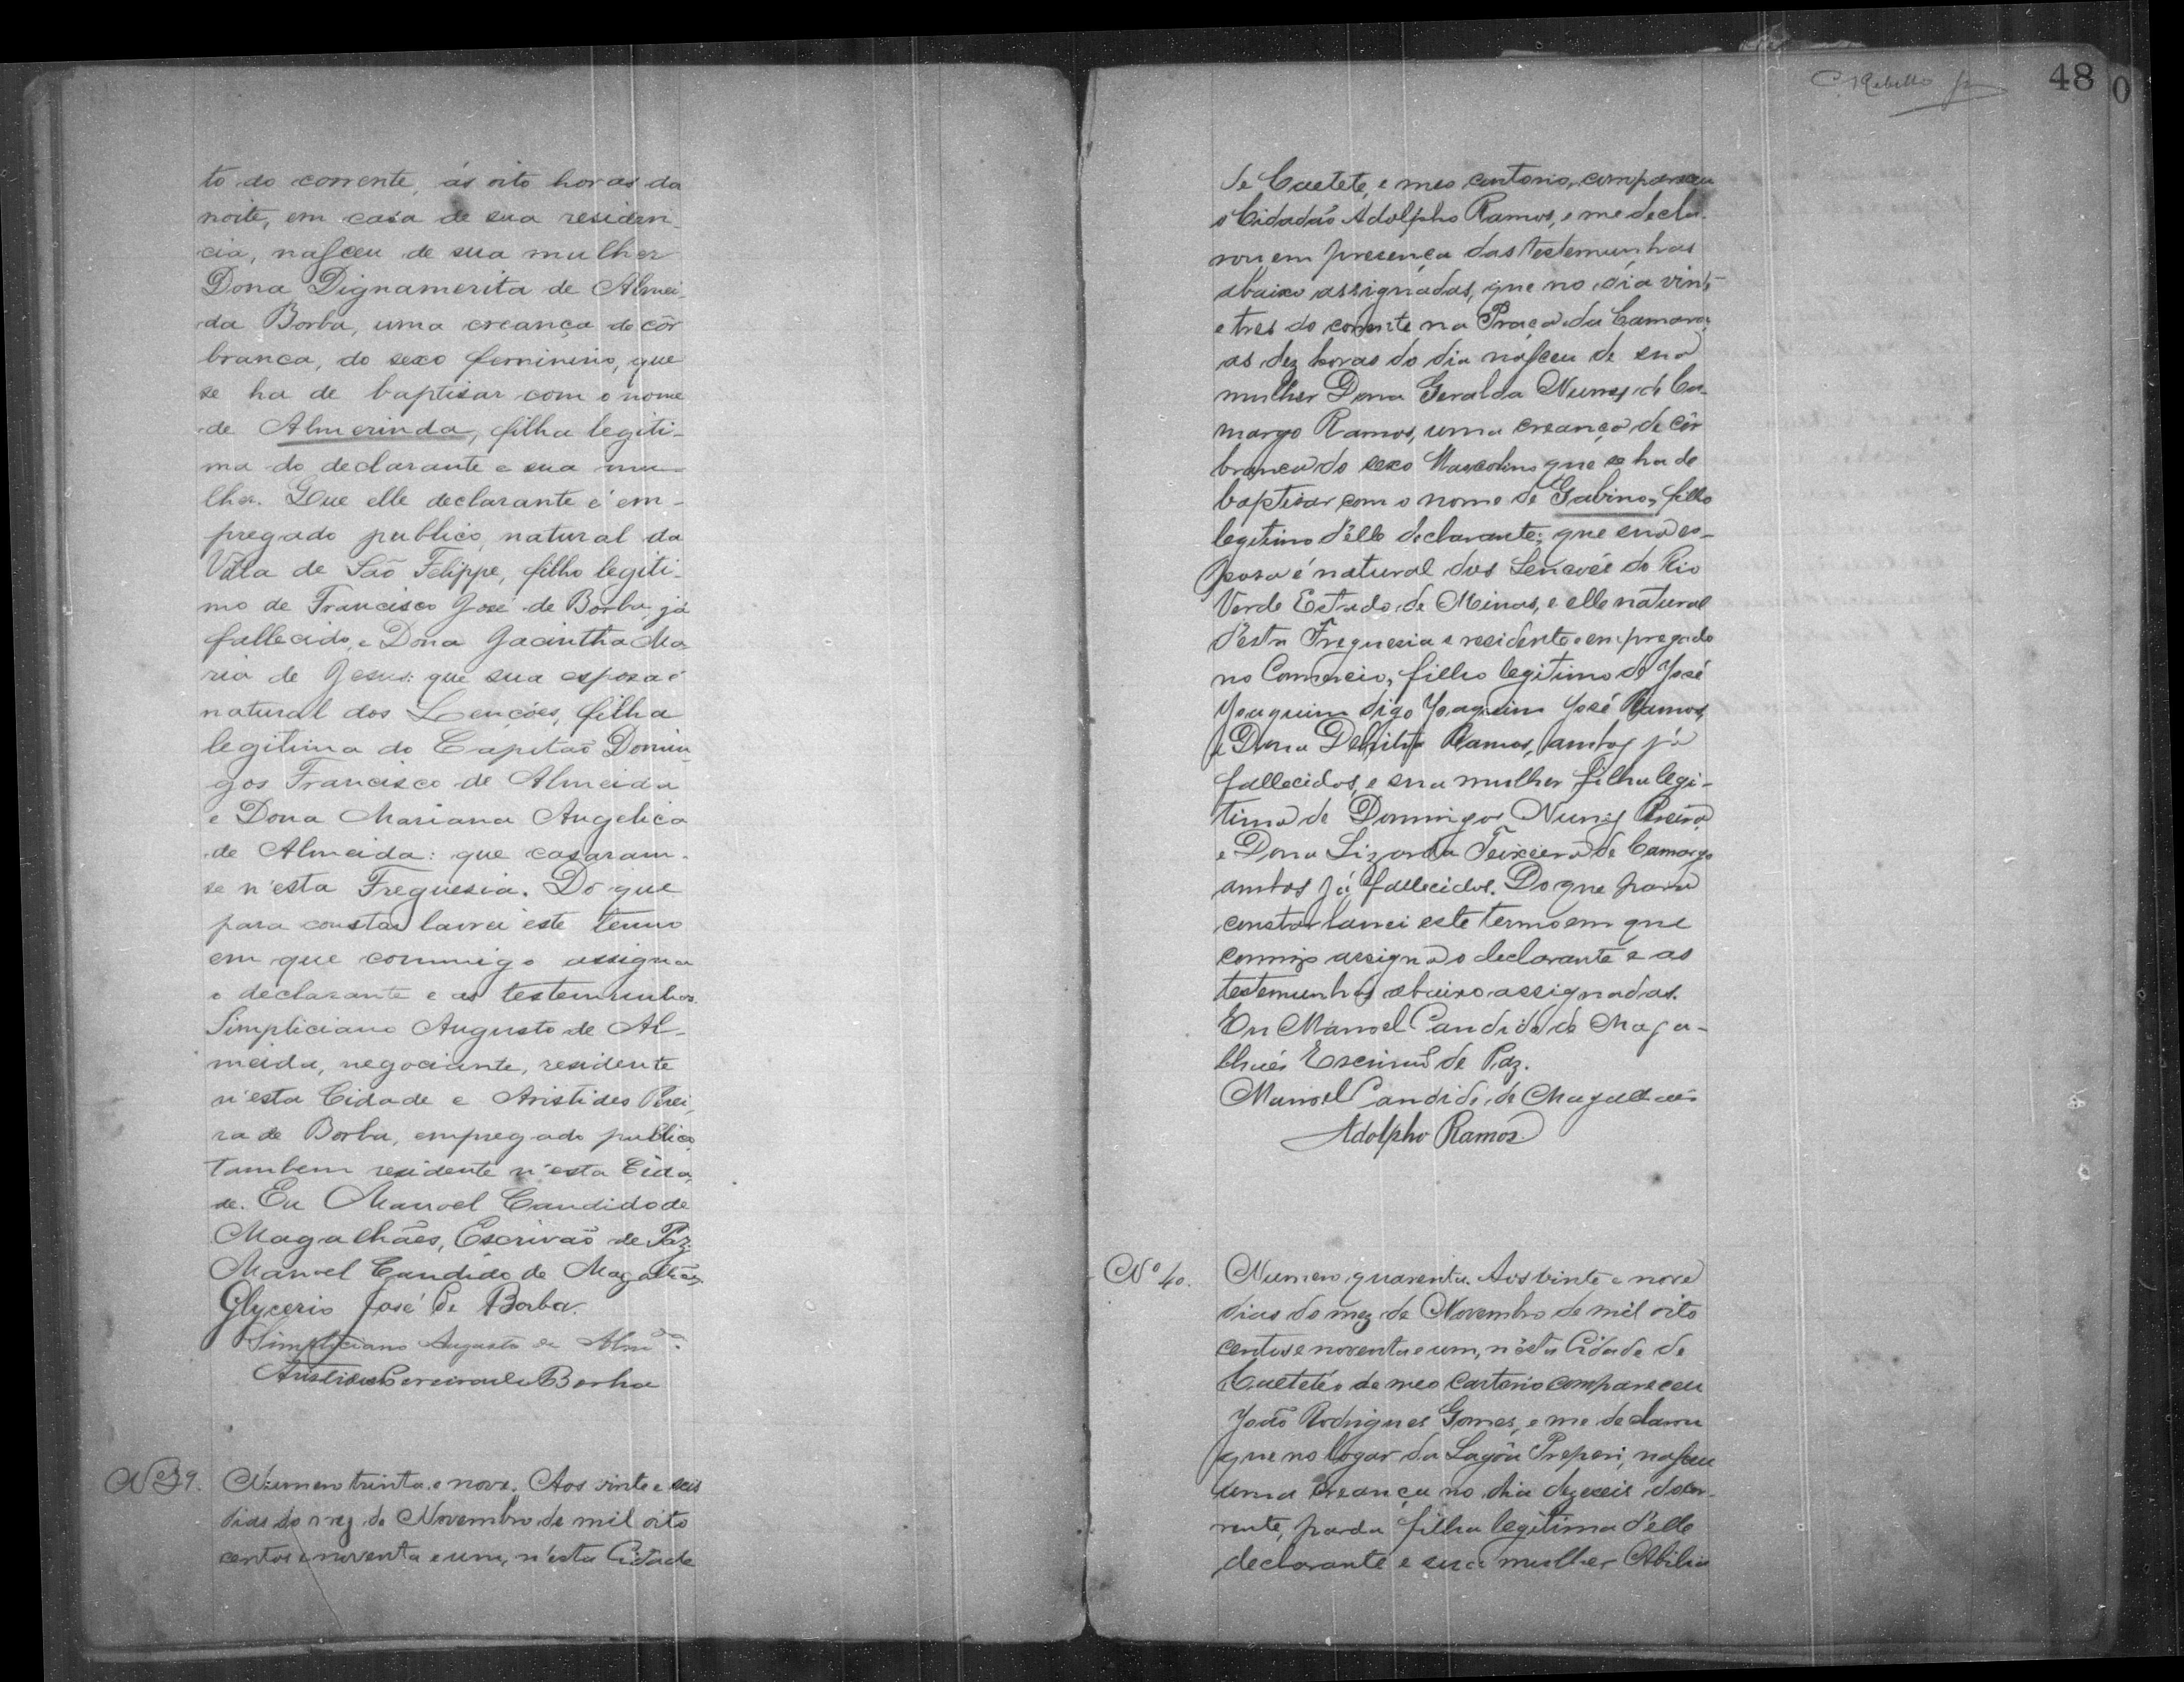 to do corrente, ás oito horas da
noite, em casa de sua residen-
cia, nasceu de sua mulher
Dona Dignamerita de Almei-
da Borba, uma creança de côr
branca, do sexo feminino, que
se ha de baptisar com o nome
de Almerinda, filha legiti-
ma do declarante e sua mu-
lher. Que elle declarante é em-
pregado publico, natural da
Villa de São Felippe, filho legiti-
mo de Francisco José de Borba, já
fallecido, e Dona Jacintha Ma-
ria de Jesus: que sua esposa é
natural dos Lençóes, filha
legitima do Capitão Domin-
gos Francisco de Almeida
e Dona Mariana Angelica
de Almeida: que casaram-
se n'esta Freguesia. Do que
para constar lavrei este termo
em que commigo assigna
o declarante e as testemunhas
Simpliciano Augusto de Al-
meida, negociante, residente
n'esta Cidade e Aristides Perei-
ra de Borba, empregado publico,
tambem residente n'esta Cida-
de. Eu Manoel Candido de
Magalhães, Escrivão de Paz.
Manoel Candido de Magalhães
Glycerio José de Borba.
Simpliciano Augusto de Almda.
Aristides Pereira de Borba
Nº 39. Numero trinta e nove. Aos vinte e seis
dias do mez de Novembro de mil oito
centos e noventa e um, n'esta Cidade
48
de Caeteté, e meo cartorio, compareceu
o Cidadão Adolpho Ramos, e me decla-
rou em presença das testemunhas
abaixo assignadas, que no dia vint-
e tres do corrente na Praça da Camara,
as dez horas do dia nasceu de sua
mulher Dona Geralda Nunes de Ca-
margo Ramos, uma creança de côr
branca do sexo Masculino que se ha de
baptisar com o nome de Gabino, filho
legitimo d'elle declarante; que sua es-
posa é natural dos Lencóes do Rio
Verde Estado de Minas, e elle natural
d'esta Freguesia e residente e empregado
no Comercio, filho legitimo de José
Joaquim digo Joaquim José Ramos,
e Dona Ramos, ambos já
fallecidos, e sua mulher filha legi-
tima de Domingos Nunes
e Dona Teixeira de Camargo
ambos já fallecidos. Do que para
constar lavrei este termo em que
comigo assigna o declarante e as
testemunhas abaixo assignadas.
Eu Manoel Candido de Maga-
lhães Escrivão de Paz.
Manoel Candido de Magalhães
Adolpho Ramos
Nº 40. Numero quarenta. Aos vinte e nove
dias do mez de Novembro de mil oito
centos e noventa e um, n'esta Cidade de
Caeteté e de meo Cartorio compareceu
João Rodrigues Gomes, e me declarou
que no logar da Lagôa nasceu
uma creança no dia dezeseis do cor-
rente, parda filha legitima d'elle
declarante e sua mulher Abilia